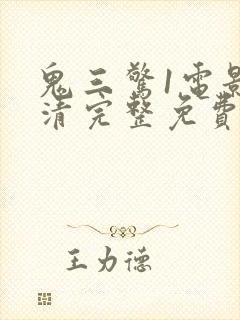 鬼三驚1電影
清完整免費
王力德